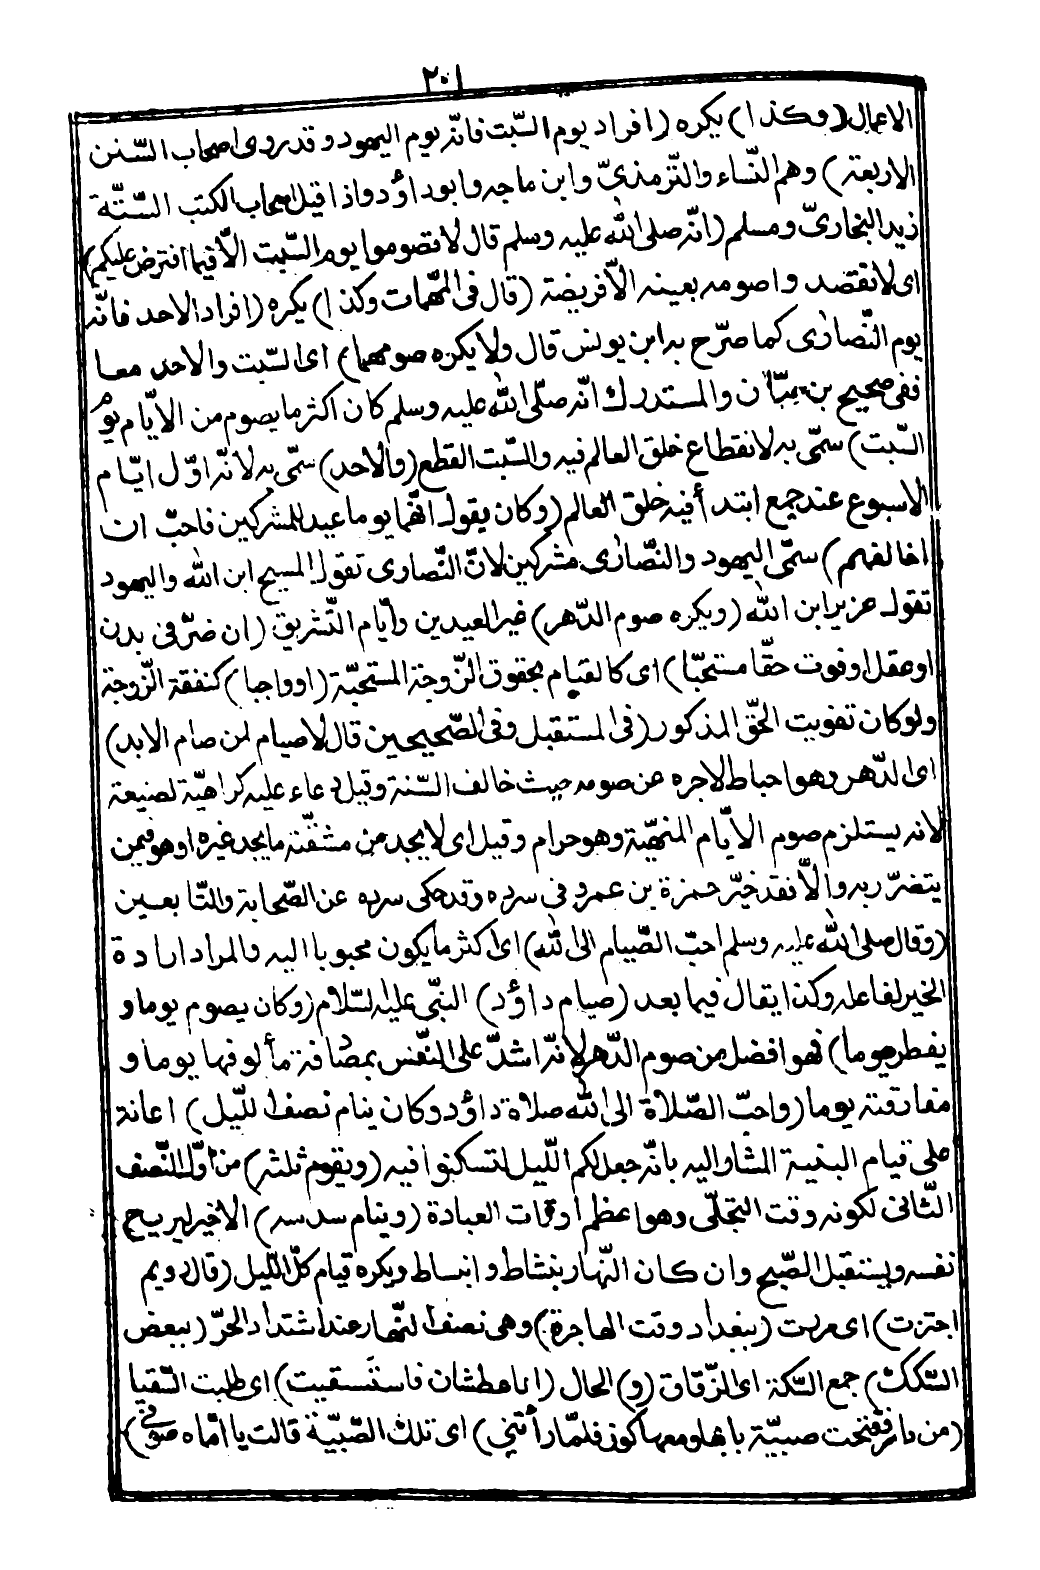 ٢٠١
الاعمال (وكذا) يكره (افراد يوم السّبت فانّه يوم اليهود وقد روى اصحاب السّنن
الاربعة) وهم النّساء والتّرمذيّ وابن ماجه وابوداؤد واذا قيل اصحاب الكتب السّتّة
زيد البخاريّ ومسلم (انّه صلى الله عليه وسلم قال لا تصوموا يوم السّبت الّا فيما افترض عليكم)
اى لا تقصدوا صومه بعينه الّا فريضة (قال فى المهمات وكذا) يكره (افراد الاحد فانّه
يوم النّصارى كما صرّح به ابن يونس قال ولا يكره صومهما) اى السّبت والاحد معا
ففى صحيح بن حبّان والمستدرك انّه صلّى الله عليه وسلم كان اكثر ما يصوم من الايّام يوم
السّبت) سمّى به لانقطاع خلق العالم فيه والسّبت القطع (والاحد) سمّى به لانّه اوّل ايّام
الاسبوع عند جمع ابتدأ فيه خلق العالم (وكان يقول انّهما يوما عيد للمشركين فاحبّ ان
اخالفهم) سمّى اليهود والنّصارى مشركين لانّ النّصارى تقول المسيح ابن الله واليهود
تقول عزير ابن الله (ويكره صوم الدّهر) غير العيدين وايّام التّشريق (ان ضرّ فى بدن
او عقل او فوت حقّا مستحبّا) اى كالقيام بحقوق الزّوجة المستحبّة (او واجبا) كنفقة الزّوجة
ولو كان تفويت الحقّ المذكور (فى المستقبل وفى الصّحيحين قال لا صيام لمن صام الابد)
اى الدّهر وهو احباط لاجره عن صومه حيث خالف السّنة وقيل دعاء عليه كراهيّة لصنيعة
لانه يستلزم صوم الايّام المنهيّة وهو حرام وقيل اى لا يجد من مشقّته ما يجد غيره او هو فيمن
يتضرّر به والّا فقد خيّر حمزة بن عمرو فى سرده وقد حكى سرده عن الصّحابة والتّابعين
(وقال صلى الله عليه وسلم احبّ الصّيام الى الله) اى اكثر ما يكون محبوبا اليه والمراد ارادة
الخير لفاعله وكذا يقال فيما بعد (صيام داؤد) النبّى عليه السّلام (وكان يصوم يوما و
يفطر يوما) فهو افضل من صوم الدّهر لانّه اشدّ على النّفس بمصافة مألوفها يوما و
مفارقته يوما (واحبّ الصّلاة الى الله صلاة داؤد وكان ينام نصف اللّيل) اعانة
على قيام البقية المشار اليه بانّه جعل لكم اللّيل لتسكنوا فيه (ويقوم ثلثه) من اوّل النّصف
الثّانى لكونه وقت التجلّى وهو اعظم اوقات العبادة (وينام سدسه) الاخير ليريح
نفسه ويستقبل الصّبح وان كان النّهار بنشاط وانبساط ويكره قيام كلّ اللّيل (قال رويم
اجتزت) اى مررت (ببغداد وقت الهاجرة) وهى نصف النّهار عند اشتداد الحرّ (ببعض
السّكك) جمع السّكة اى الزّقاق (و) الحال (انا عطشان فاستسقيت) اى طلبت السّقيا
(من دار ففتحت صبيّة بابها ومعها كوز فلمّا رأتنى) اى تلك الصّبيّة قالت يا امّاه صوفى)